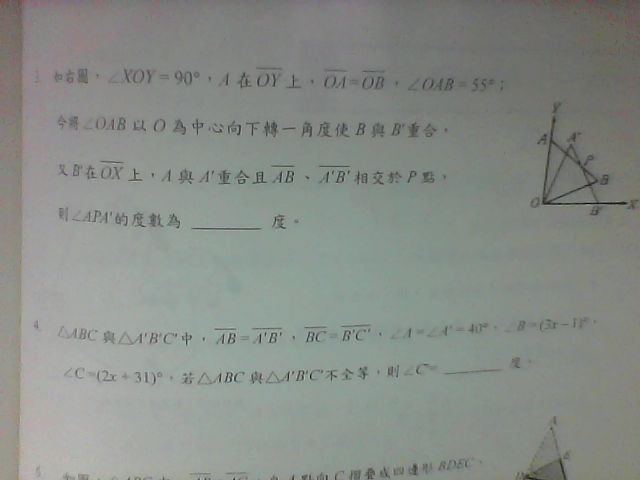 3. 如右圖，∠XOY=90°，A 在 OY 上，OA=OB，∠OAB=55°；
今將∠OAB 以 O 為中心向下轉一角度使 B 與 B'重合，
又 B'在 OX 上，A 與 A'重合且 AB、A'B' 相交於 P 點，
則∠APA'的度數為 ______ 度。
Y
A
A'
P
B
O
B'
X
4. △ABC 與△A'B'C'中，AB=A'B'，BC=B'C'，∠A=∠A'=40°，∠B=(3x−1)°，
∠C=(2x+31)°，若△ABC 與△A'B'C'不全等，則∠C'= ______ 度。
A
E
D
點向 C 摺疊成四邊形 BDEC，